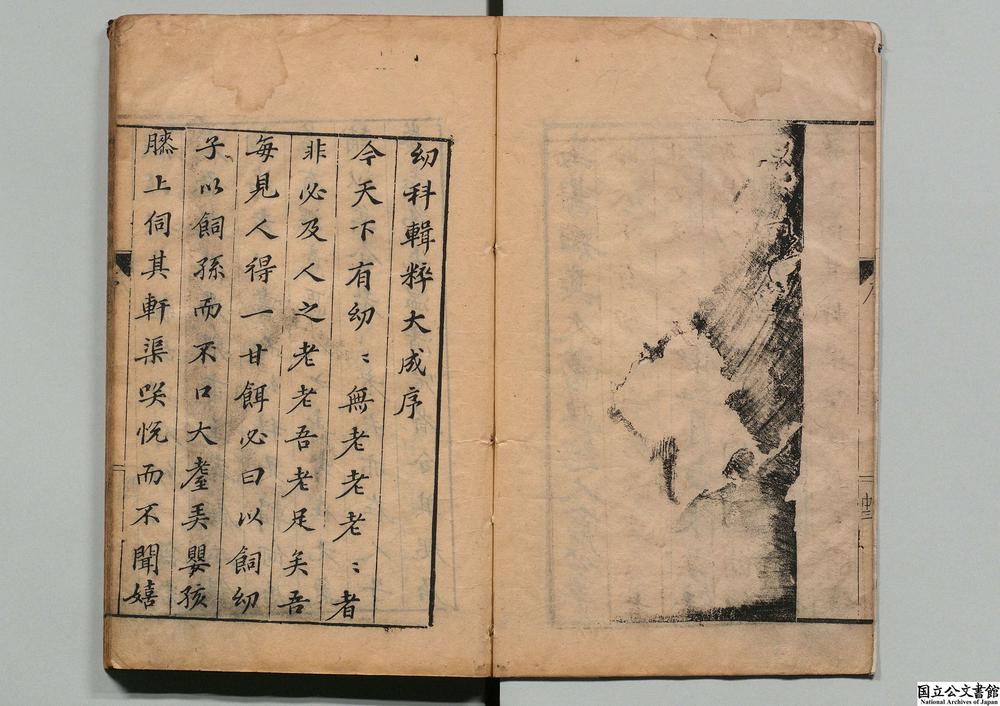 幼科輯粹大成序
今天下有幼〻無老老老〻者
非必及人之老老吾老足矣吾
每見人得一甘餌必曰以飼幼
子以飼孫而不口大耋弄嬰孩
膝上伺其軒渠咲悅而不聞嬉
国立公文書館
National Archives of Japan